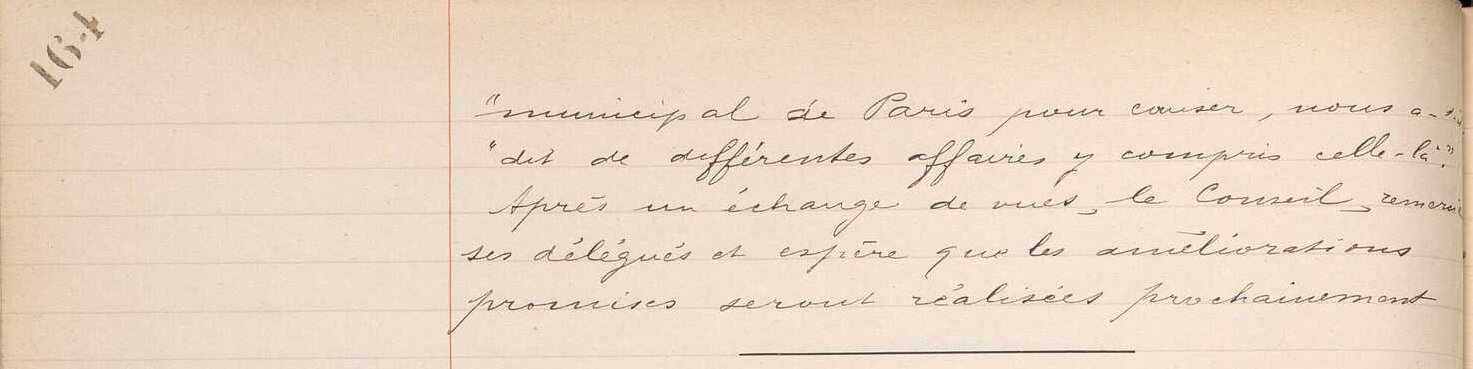 164
"municipal de Paris pour causer, nous a-t-il
"dit de différentes affaires y compris celle-là".
Après un échange de vues, le Conseil, remercie
ses délégués et espère que les améliorations
promises seront réalisées prochainement